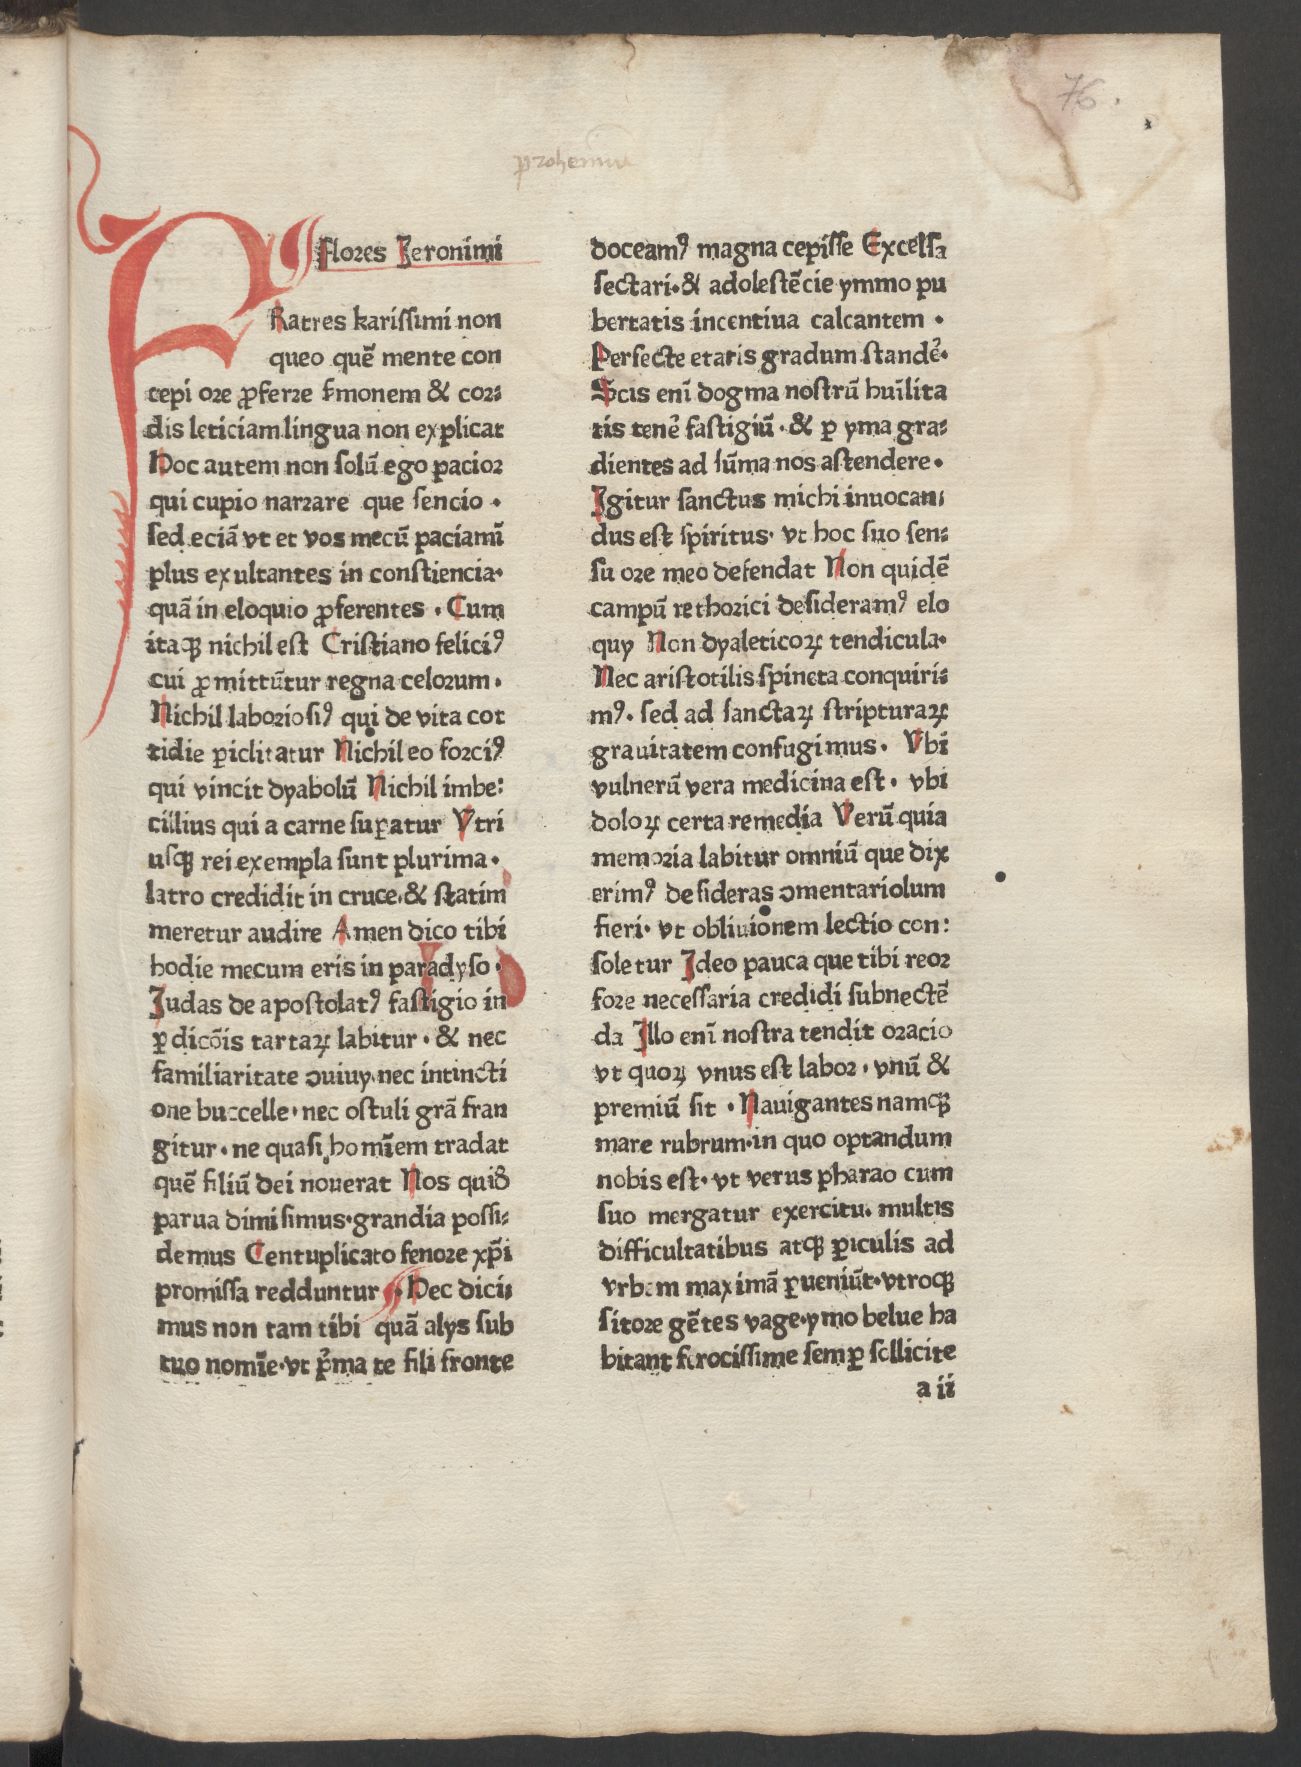 76.
prohemiū
flores Jeronimi
FRatres karissimi non
queo quē mente con
cepi ore ꝓferre s̄monem & cor⹀
dis leticiam lingua non explicat
Hoc autem non solū ego pacior
qui cupio narrare que sencio ·
sed eciā vt et vos mecū paciamī
plus exultantes in constiencia·
quā in eloquio ꝓferentes · Cum
itaqꝫ nichil est Cristiano feliciꝰ
cui ꝓmittūtur regna celorum ·
Nichil laboriosiꝰ qui de vita cot
tidie ꝑiclitatur Nichil eo forciꝰ
qui vincit dyabolū Nichil imbe⹀
cillius qui a carne suꝑatur Vtri
usqꝫ rei exempla sunt plurima ·
latro credidit in cruce·& statim
meretur audire Amen dico tibi
hodie mecum eris in paradyso ·
Judas de apostolatꝰ fastigio in
ꝑdicōis tartaꝝ labitur · & nec
familiaritate ꝯuiuy·nec intincti
one buccelle· nec ostuli grā fran
gitur · ne quasi homīem tradat
quē filiū dei nouerat Nos quid̄
parua dimisimus·grandia possi⹀
demus Centuplicato fenore xp̄i
promissa redduntur · Hec dici⹀
mus non tam tibi quā alys sub
tuo nomīe·vt p̄ma te fili fronte
doceamꝰ magna cepisse Excelsa
sectari·& adolestēcie ymmo pu
bertatis incentiua calcantem ·
Perfecte etatis gradum standē·
Scis enī dogma nostrū huīlita
tis tenē fastigiū · & ꝑ yma gra⹀
dientes ad sūma nos astendere·
Igitur sanctus michi inuocan⹀
dus est spiritus· vt hoc suo sen⹀
su ore meo defendat Non quidē
campū rethorici desideramꝰ elo
quy Non dyaleticoꝝ tendicula·
Nec aristotilis spineta conquiri⹀
mꝰ· sed ad sanctaꝝ stripturaꝝ
grauitatem confugimus · Vbi
vulnerū vera medicina est · vbi
doloꝝ certa remedia Verū quia
memoria labitur omniū que dix
erimꝰ desideras ꝯmentariolum
fieri· vt obliuionem lectio con⹀
soletur Ideo pauca que tibi reor
fore necessaria credidi subnectē
da Illo enī nostra tendit oracio
vt quoꝝ vnus est labor · vnū &
premiū sit · Nauigantes namqꝫ
mare rubrum·in quo optandum
nobis est· vt verus pharao cum
suo mergatur exercitu· multis
difficultatibus atqꝫ ꝑiculis ad
vrbem maximā ꝑueniūt·vtroqꝫ
sitore gētes vage·ymo belue ha
bitant ferocissime semꝑ sollicite
a ii